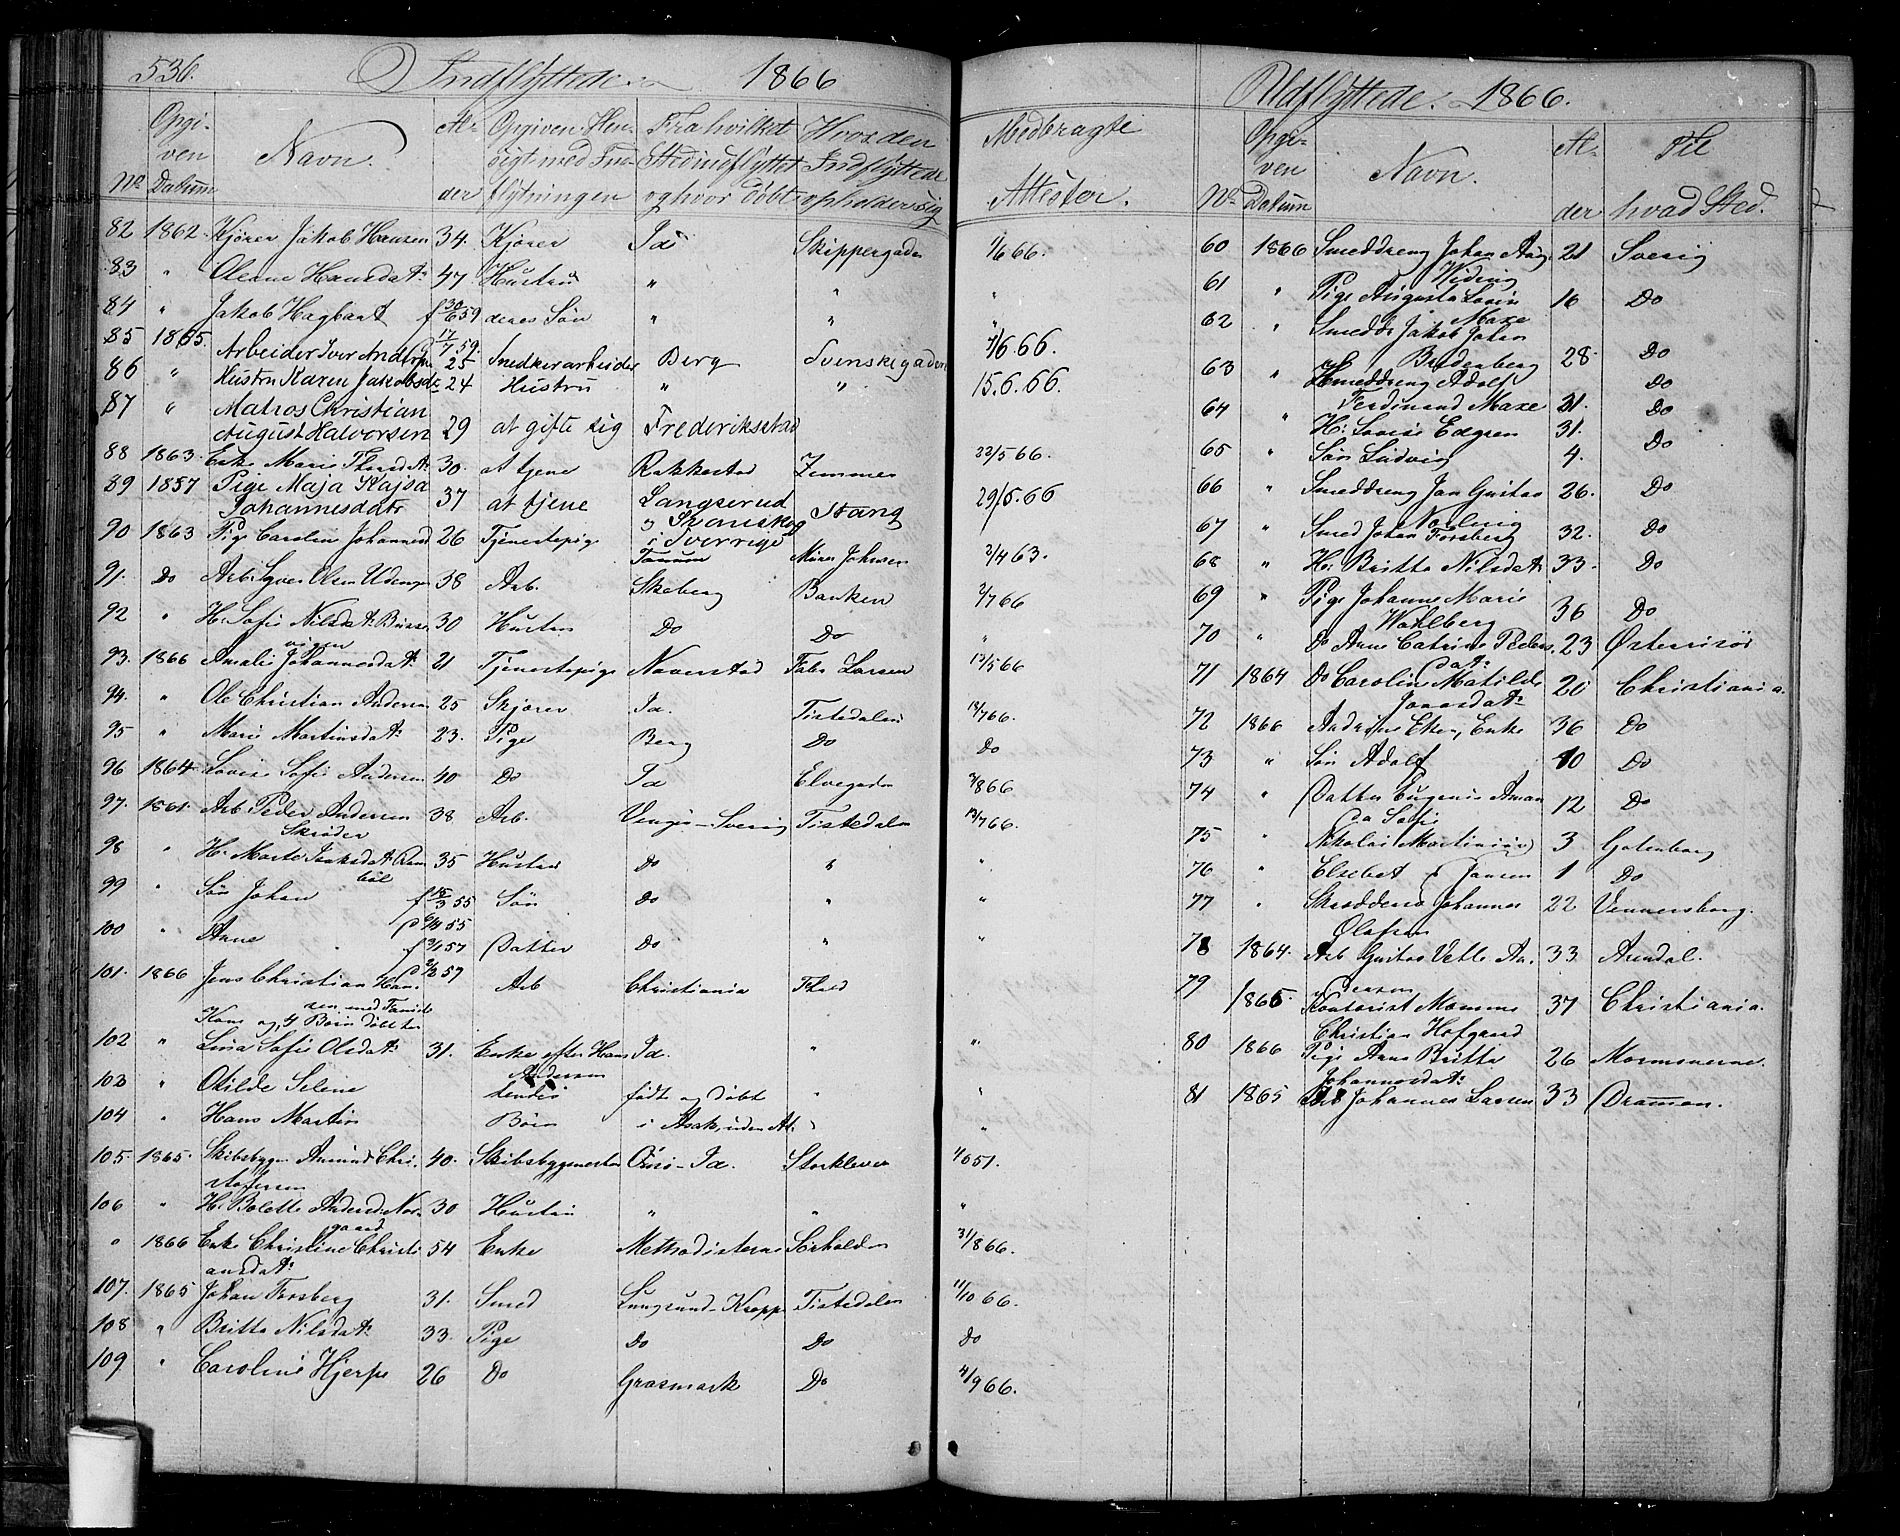 536.
Indflyttede 1866
No Opgiven Datum Navn. Alder Opgiven Hensigt med Indflytningen Fra hvilket Sted indflyttet og hvor Døbt Hvor den Indflyttede opholder sig Medbragte Attester.
82 1862. Kjører Jakob Hansen 34. Kjører Id Skippergaden 1/6 66.
83 " Olenne Hansdatr 47 Hustru " " "
84 " Jakob Hagbart f 30/6 59 deres Søn " " "
17/7 59.
85 1865. Arbeider Iver Andersen 25 Snedkerarbeider Berg Svenskegaden 1/6 66.
86 " Hustru Karen Jakobsdr 24 Hustru " " 15.6.66.
87 " Matros Christian
August Halvorsen 29 at gifte sig Frederiksstad
88 1863. Enke Marie 30. at tjene Rakkestad 22/5 66.
89 1857 Pige Maja Kajsa
Johannesdatr 37 at tjene Langserud Stang 29/5. 66
i Sverrige
90 1863 Pige Carolin Johannesd 26 Tjenestepige Tanum Johnsen 2/4 63.
91. Do Arb. Syver Olsen 38 Arb. Skeberg Banken 2/7 66
92 " H. Sofie Nilsdatr 30 Hustru Do Do "
93. 1866 Amalie Johannesdatr 21 Tjenestepige Naverstad Fabr Larsen 13/5 66
94. " Ole Christian Andersen 25 Skjører Id. Tistedalen 18/7 66.
95 " Marie Martinsdatr 23. Pige Berg Do Do
96 1864 Lovise Sofie Andersen 40 Do Id Elvegaden 2/8 66
97. 1861. Arb. Peder Andersen 38 Arb. Sverig Tistedalen 13/7 66.
Skrøder
98 " H. Marte Isaksdatr 35 Hustru Do " "
99 " Søn Johan f 15/3 55 Søn Do " "
100 " Anne f 3/1 57 Datter Do " "
101. 1866 Jens Christian Han- Arb Christiania "
sen med Familie
Kone og 4 Børn døbt
102 " Lina Sofie Olsdatr 31. Enke efter Hans Id. " "
Andersen
103 " Otilde Seline født og døbt " "
104 " Hans Martin Børn i Asak, uden At. " "
105. 1865. Skibsbygm Amund Chri- 40. Skibsbygmester Id. 4/6 51.
stofersen
106 " H. Bolette Andersd. Nor- 30 Hustru " " "
gaard
" 1866 Enke Christine Christi- 54 Enke Methodisterne Sørhalden 31/8 66.
ansdatr
107. 1865 Johan Forsberg 31. Smed Tistedalen 11/10 66.
108 " Britta Nilsdatr 33. Pige Do Do Do
109 " Caroline Hjerpe 26 Do Grasmark Do 4/9 66.
Udflyttede. 1866.
No Opgiven Datum Navn. Alder Til hvad Sted.
60 1866 Smeddreng Johan Aug. 21 Sverig
61 " Pige Augusta Lovise 16 Do
Maxe
62 " Smedd. Jakob Johan
Bredenberg 28. Do
63 " Smeddreng Adolf Do
Ferdinand Maxe 31.
64 " H. Lovise Edgren 31. Do
65 " Søn Ludvig 4. Do
66 " Smeddreng Jan Gustav 26. Do
67 " Smed Johan Forsberg 32. Do
68 " H. Britta Nilsdatr 33. Do
69 " Pige Johanne Marie
Wahlberg 36 Do
70 " Do Anne Catrine Peders- 23 Østerrisør
datr
71 1864 Do Carolin Matilde 20 Christiania.
72 1866 Enke 36 Do
73 " Søn Adolf 10 Do
74 " Datter Eugenie Aman- 12 Do
da Sofie
75 " Nikolai Martinius 3 Gotenborg
76 " Elsebet Jansen 1 Do
77 " Skrædders. Johannes 22 Vennersborg.
Olafsen
78 1864. Arb Gustav 33 Arendal.
79 1865. Kontorist Mommo 37 Christiania.
Christian Hofgaard
80 1866 Pige Anne Britta 26 Mormonerne.
Johannesdatr
81 1865 Johannes Larsen 33 Drammen.